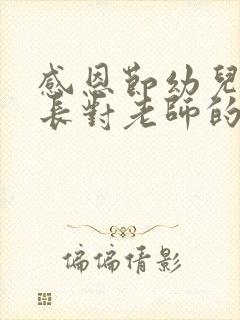 感恩節幼兒
長對老師的
偏偏倩影